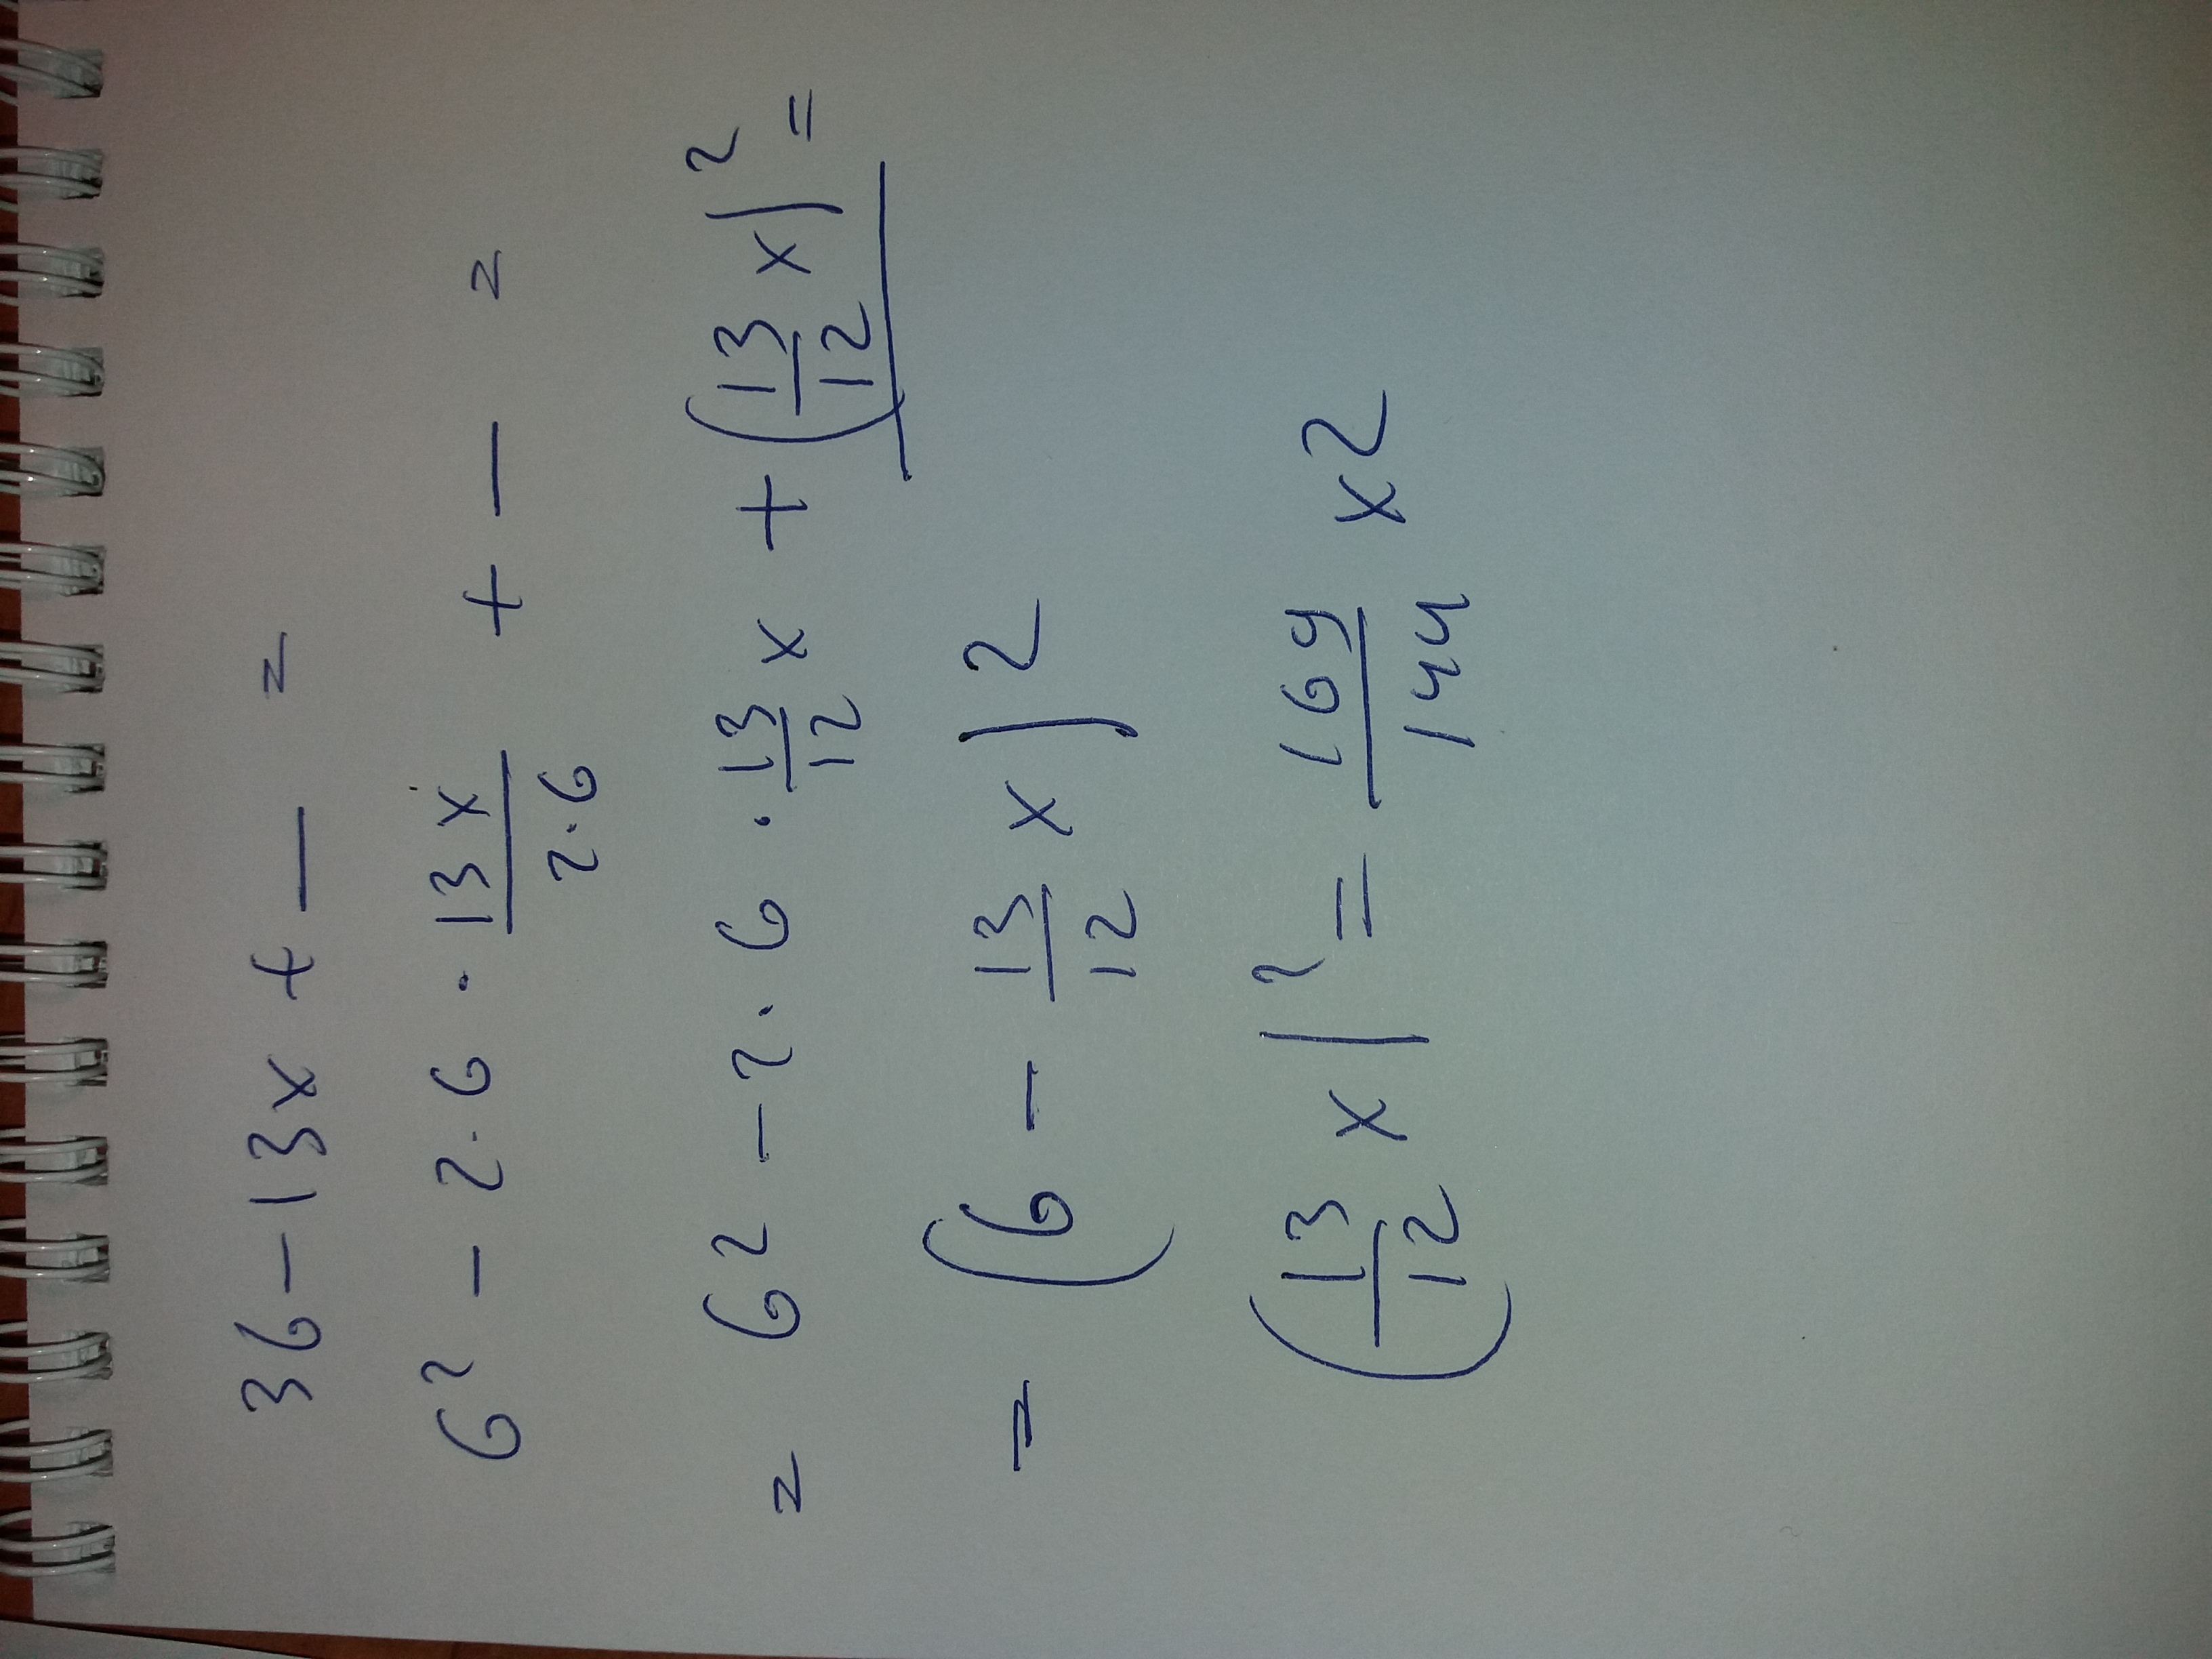 36 - 13x + _ =
6² - 2·6 · 13x/2·6 + _ =
= 6² - 2·6 · 13/12 x + (13/12 x)² =
= (6 - 13/12 x)2
(13/12 x)² = 169/144 x2